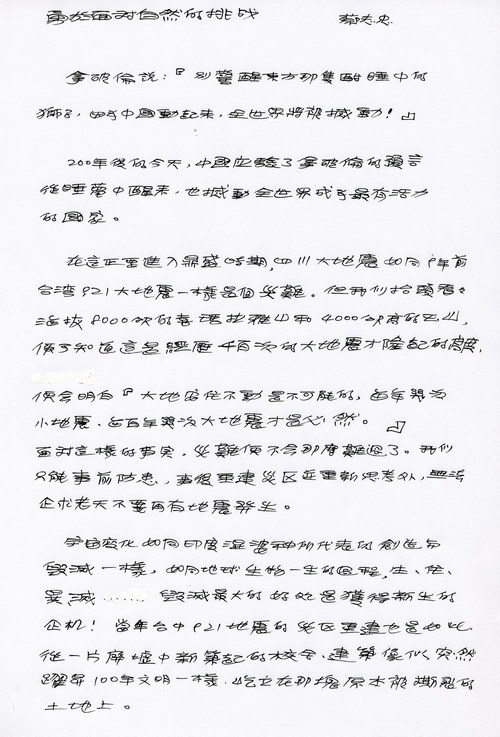 勇於面對自然的挑戰 蔡志忠
拿破崙說：『別驚醒東方那隻酣睡中的
獅子，因為中國動起來，全世界將被撼動！』
200年後的今天，中國应驗了拿破倫的預言
從睡夢中醒來，也撼動全世界成了最有活力
的國家。
在這正要進入鼎盛時期，四川大地震如同9年前
台湾921大地震一樣是個災難。但我们抬頭看
海拔8000公尺的喜瑪拉雅山和4000公尺高的玉山，
便了知道這是經歷千百次的大地震才隆起的高度，
便会明白『大地磐佇不動是不可能的，每年幾次
小地震、每百年幾次大地震才是必然。』
面對這樣的事实，災難便不会那麼難過了。我们
只能事前防患，事後重建災区並重新思考外，無法
企求老天不要再有地震發生。
宇宙变化如同印度湿婆神所代表的創造与
毀滅一樣，如同地球生物一生的過程，生、住、
異、滅……毀滅最大的好处是獲得新生的
企机！當年台中921地震的災区重建也是如此
從一片廢墟中新築起的校舍、建築像似突然
躍昇100年文明一樣，屹立在那塊原本被撕裂的
土地上。